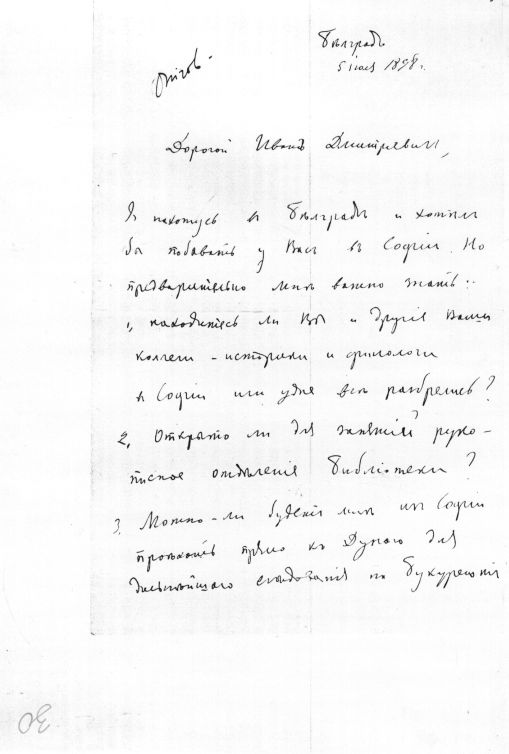 Бѣлградъ
5 іюля 1898 г.
Дорогой Иванъ Дмитріевичъ,
Я нахожусь въ Бѣлградѣ и хотѣлъ
бы побывать у Васъ въ Софіи. Но
предварительно мнѣ важно знать:
1, находитесь ли Вы и другіе Ваши
коллеги - историки и филологи
въ Софіи или уже всѣ разбрелись?
2, Открыто ли для занятій руко-
писное отдѣленіе библіотеки?
3. Можно-ли будетъ мнѣ изъ Софіи
проѣхать прямо къ Дунаю для
дальнѣйшаго слѣдованія въ Букурештъ